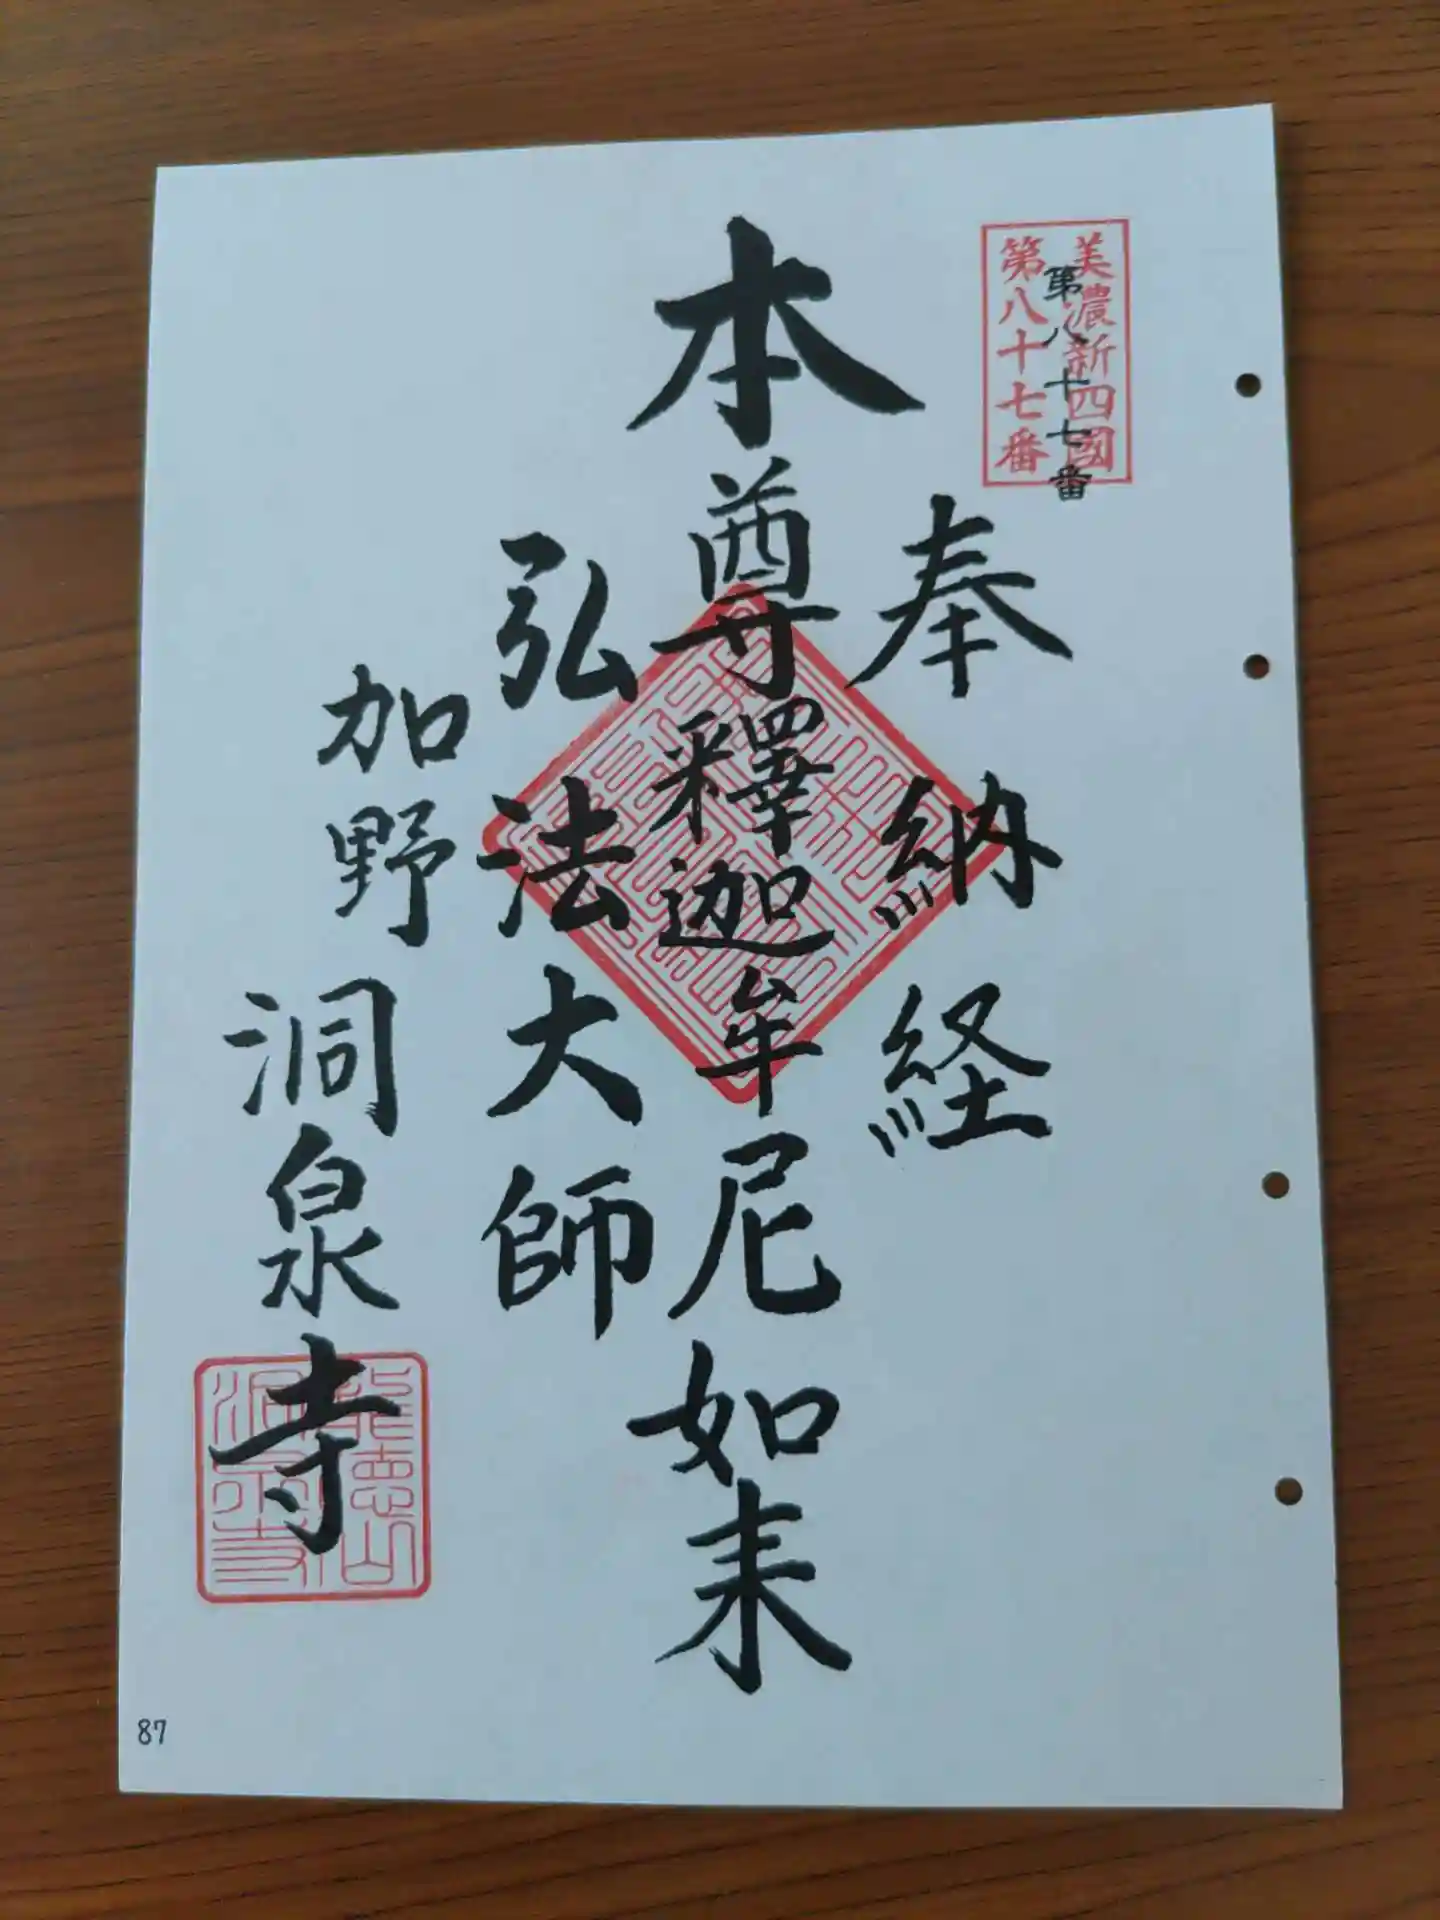 美濃新四國
第八十七番
第八十七番
奉納経
本尊釋迦牟尼如来
弘法大師
加野
洞泉寺
龍徳山
洞泉寺
87